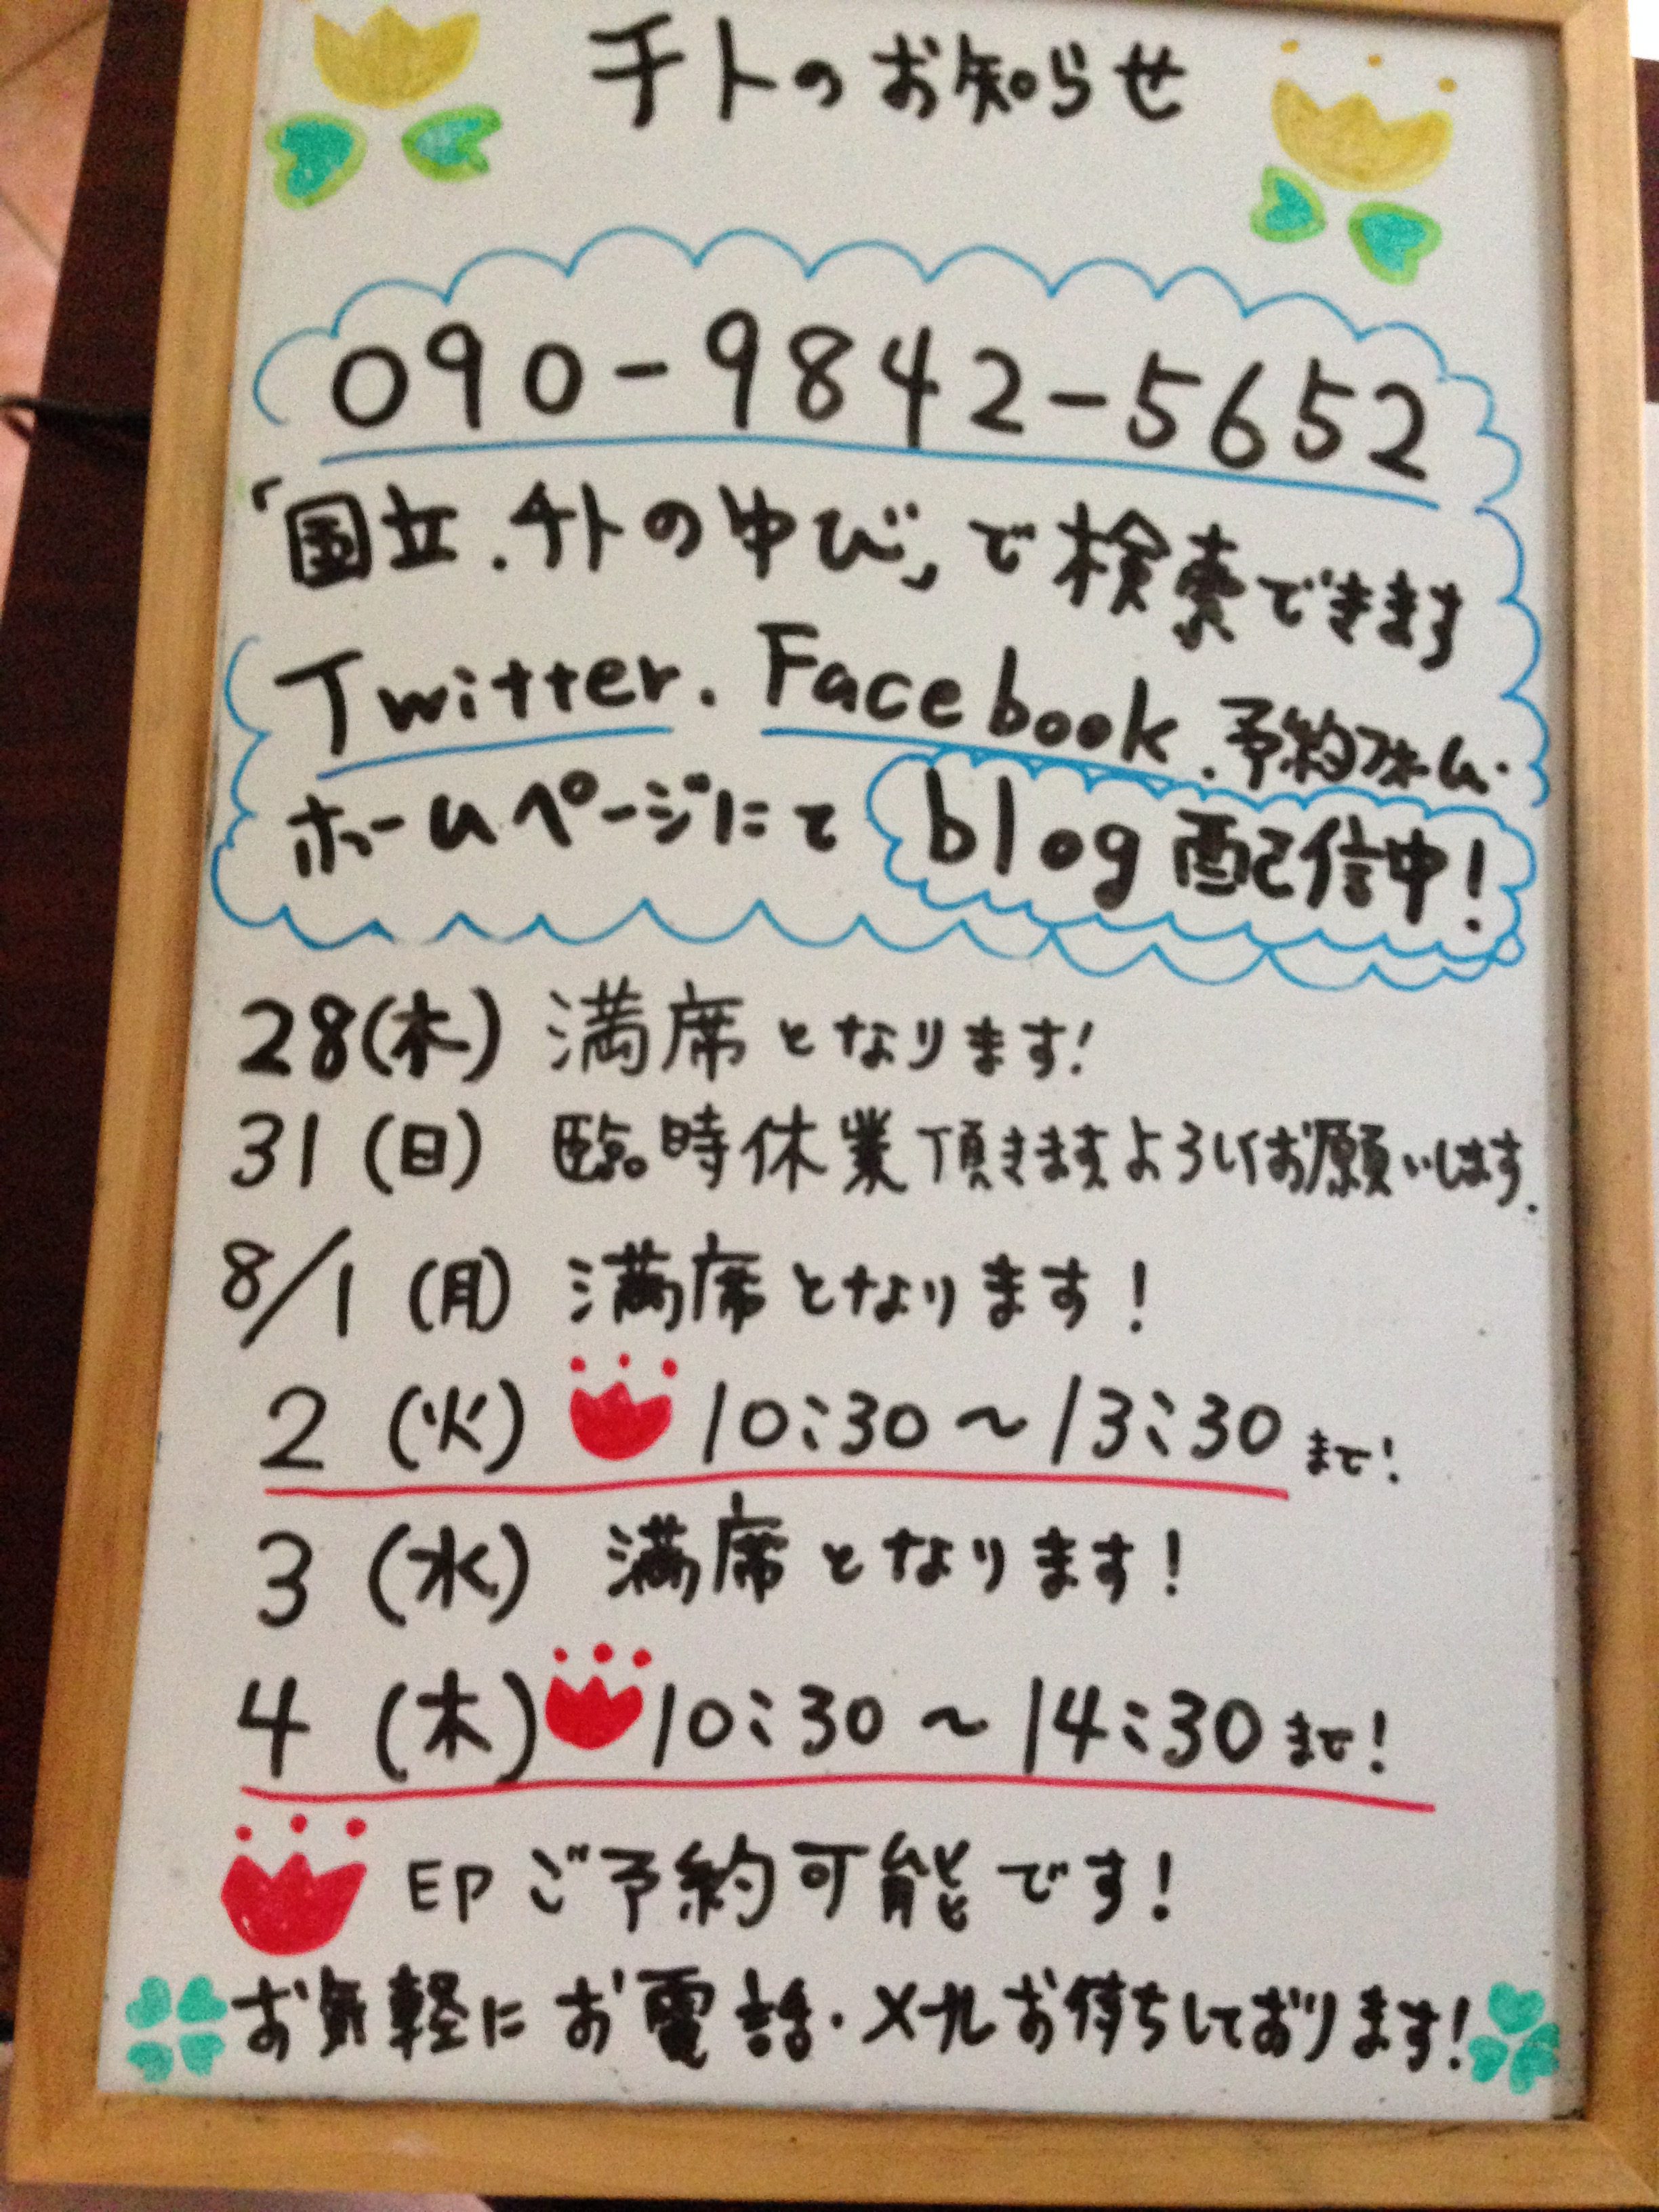 チトのお知らせ
090-9842-5652
「国立.チトのゆび」で検索できます
Twitter.Facebook.予約フォーム.
ホームページにて blog配信中!
28(木) 満席となります!
31(日) 臨時休業頂きますよろしくお願いします.
8/1(月) 満席となります!
2(火) 10:30〜13:30まで!
3(水) 満席となります!
4(木) 10:30〜14:30まで!
EPご予約可能です!
お気軽にお電話・メールお待ちしております!